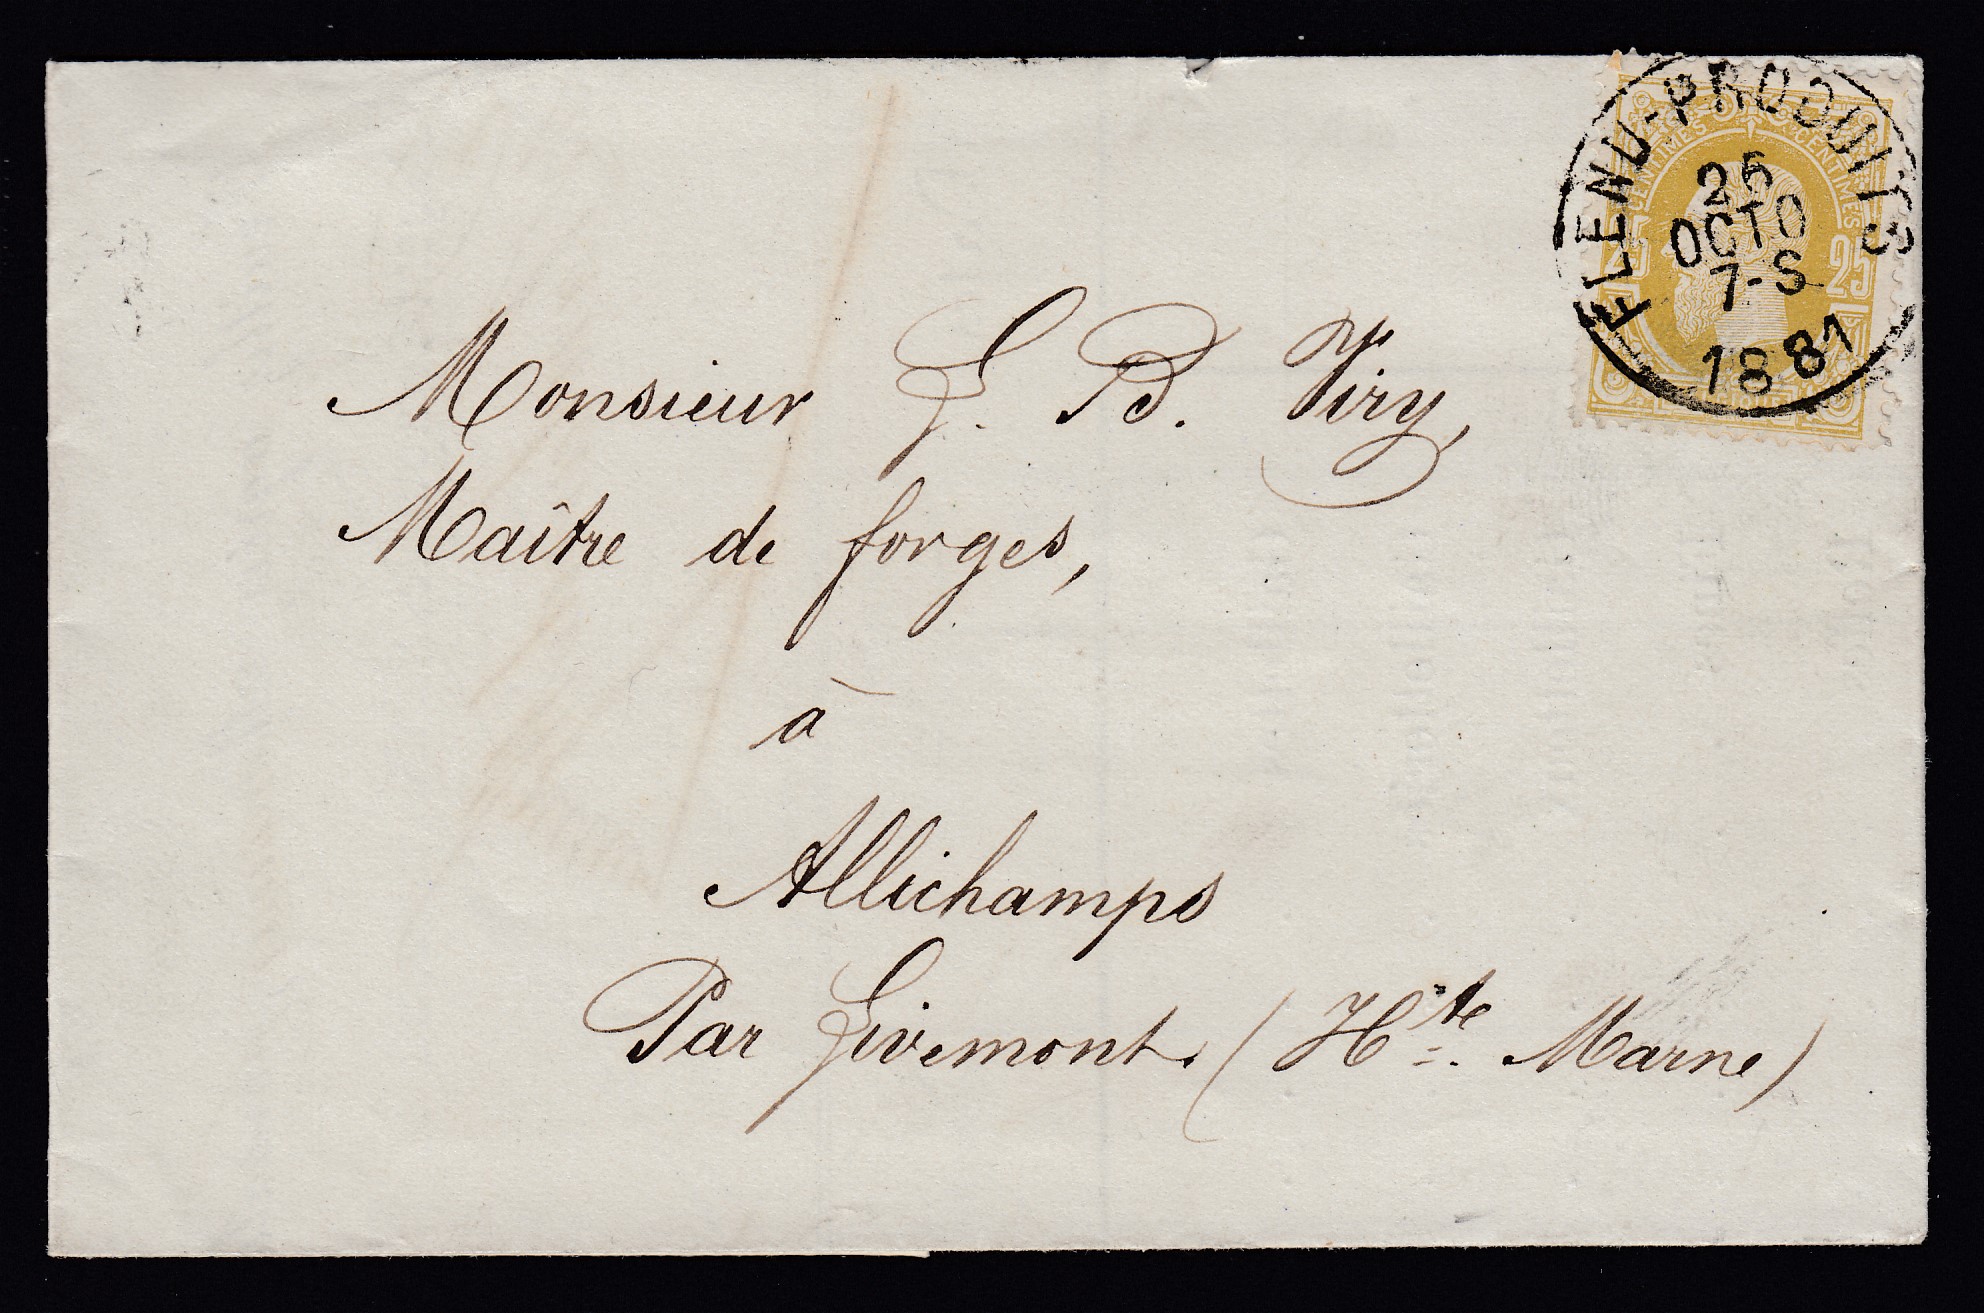 FLENU-PRODUITS
25
OCTO
7-S
1881
CENTIMES CENTIMES
25 25
Monsieur G. B. Viry,
Maître de forges,
à
Allichamps
Par Givemont. (Hte. Marne)